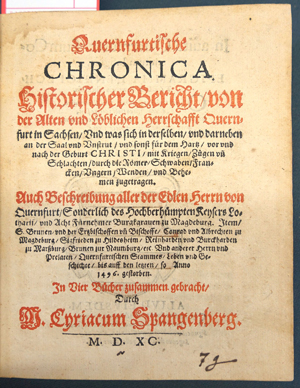 Quernfurtische
CHRONICA,
Historischer Bericht/ von
der Alten vnd Löblichen Herrschafft Quern-
furt in Sachsen/ Vnd was sich in derselben/ vnd darneben
an der Saal vnd Vnstrut/ vnd sonst für dem Hartz/ vor vnd
nach der Geburt CHRISTI/ mit Kriegen/ Zügen vn̄
Schlachten/ durch die Römer/ Schwaben/ Fran-
cken/ Vngern/ Wenden/ vnd Behe-
men zugetragen.
Auch Beschreibung aller der Edlen Herrn von
Quernfurt/ Sonderlich des Hochberhümpten Keysers Lo-
tharii/ vnd Acht Fürnehmer Burggrauen zu Magdeburg. Item/
S. Brunen/ vnd der Ertzbischoffen vn̄ Bischoffe/ Conrad vnd Albrechten zu
Magdeburg/ Sifrieden zu Hildesheim/ Reinharden vnd Burckharden
zu Marsburg/ Brunen zu Naumburg/ etc. Vnd anderer Herrn vnd
Prelaten/ Quernfurtischen Stammes/ Leben vnd Ge-
schichte/ bis auff den letzten/ so Anno
1496. gestorben.
In Vier Bücher zusammen gebracht/
Durch
M. Cyriacum Spangenberg.
M. D. XC.